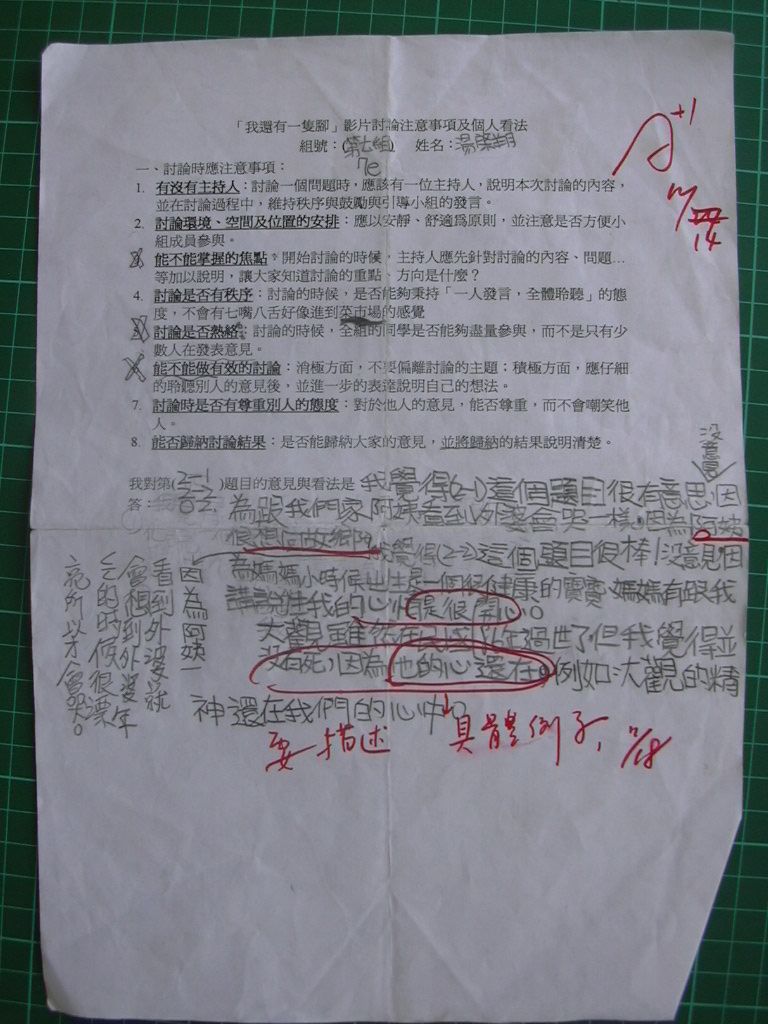 「我還有一隻腳」影片討論注意事項及個人看法
組號：(第七組) 姓名：湯
7e
A+1
11/14
一、討論時應注意事項：
1. 有沒有主持人：討論一個問題時，應該有一位主持人，說明本次討論的內容，
並在討論過程中，維持秩序與鼓勵與引導小組的發言。
2. 討論環境、空間及位置的安排：應以安靜、舒適為原則，並注意是否方便小
組成員參與。
3. 能不能掌握的焦點：開始討論的時候，主持人應先針對討論的內容、問題…
等加以說明，讓大家知道討論的重點、方向是什麼？
4. 討論是否有秩序：討論的時候，是否能夠秉持「一人發言，全體聆聽」的態
度，不會有七嘴八舌好像進到菜市場的感覺
5. 討論是否熱絡：討論的時候，全組的同學是否能夠盡量參與，而不是只有少
數人在發表意見。
6. 能不能做有效的討論：消極方面，不要偏離討論的主題；積極方面，應仔細
的聆聽別人的意見後，並進一步的表達說明自己的想法。
7. 討論時是否有尊重別人的態度：對於他人的意見，能否尊重，而不會嘲笑他
人。
8. 能否歸納討論結果：是否能歸納大家的意見，並將歸納的結果說明清楚。
沒意見
我對第(2-1 2-2)題目的意見與看法是 我覺得(2-1)這個題目很有意思,因
答：為跟我們家阿姨看到外婆會哭一樣。因為阿姨
很想 故鄉 我覺得(2-2)這個題目很棒!沒意見,因
為媽媽小時候出生是一個很健康的寶寶,媽媽有跟我
講說生我的心情是很開心。
大觀雖然在 年過世了,但我覺得並
沒有死,因為他的心還在。例如:大觀的精
神還在我們的心中。
因為阿姨一
看到外婆就
會想到外婆年
的時候很漂
亮所以才會哭。
要描述 具體例子, 11/18